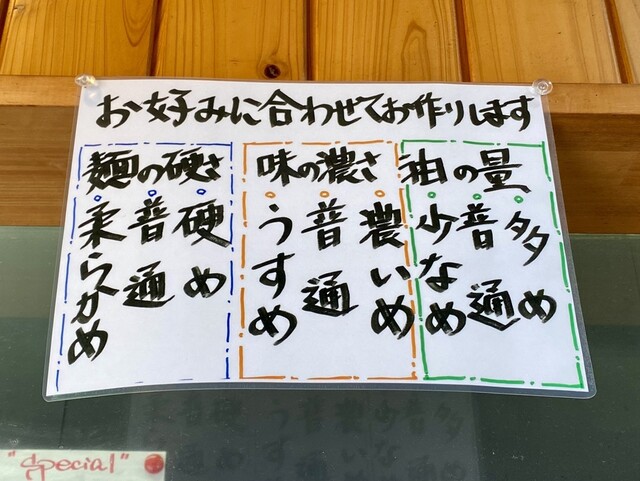 お好みに合わせてお作りします
麺の硬さ
硬め
普通
柔らかめ
味の濃さ
濃いめ
普通
うすめ
油の量
多め
普通
少なめ
"Special"